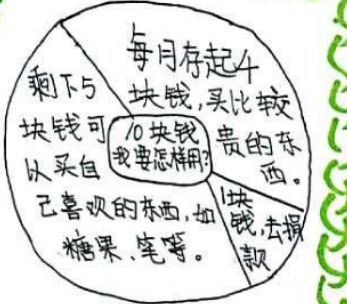 10块钱
我要怎样用?
每月存起4
块钱,买比较
贵的东
西。
1块
钱,去捐
款
剩下5
块钱可
以买自
己喜欢的东西,如
糖果、笔等。